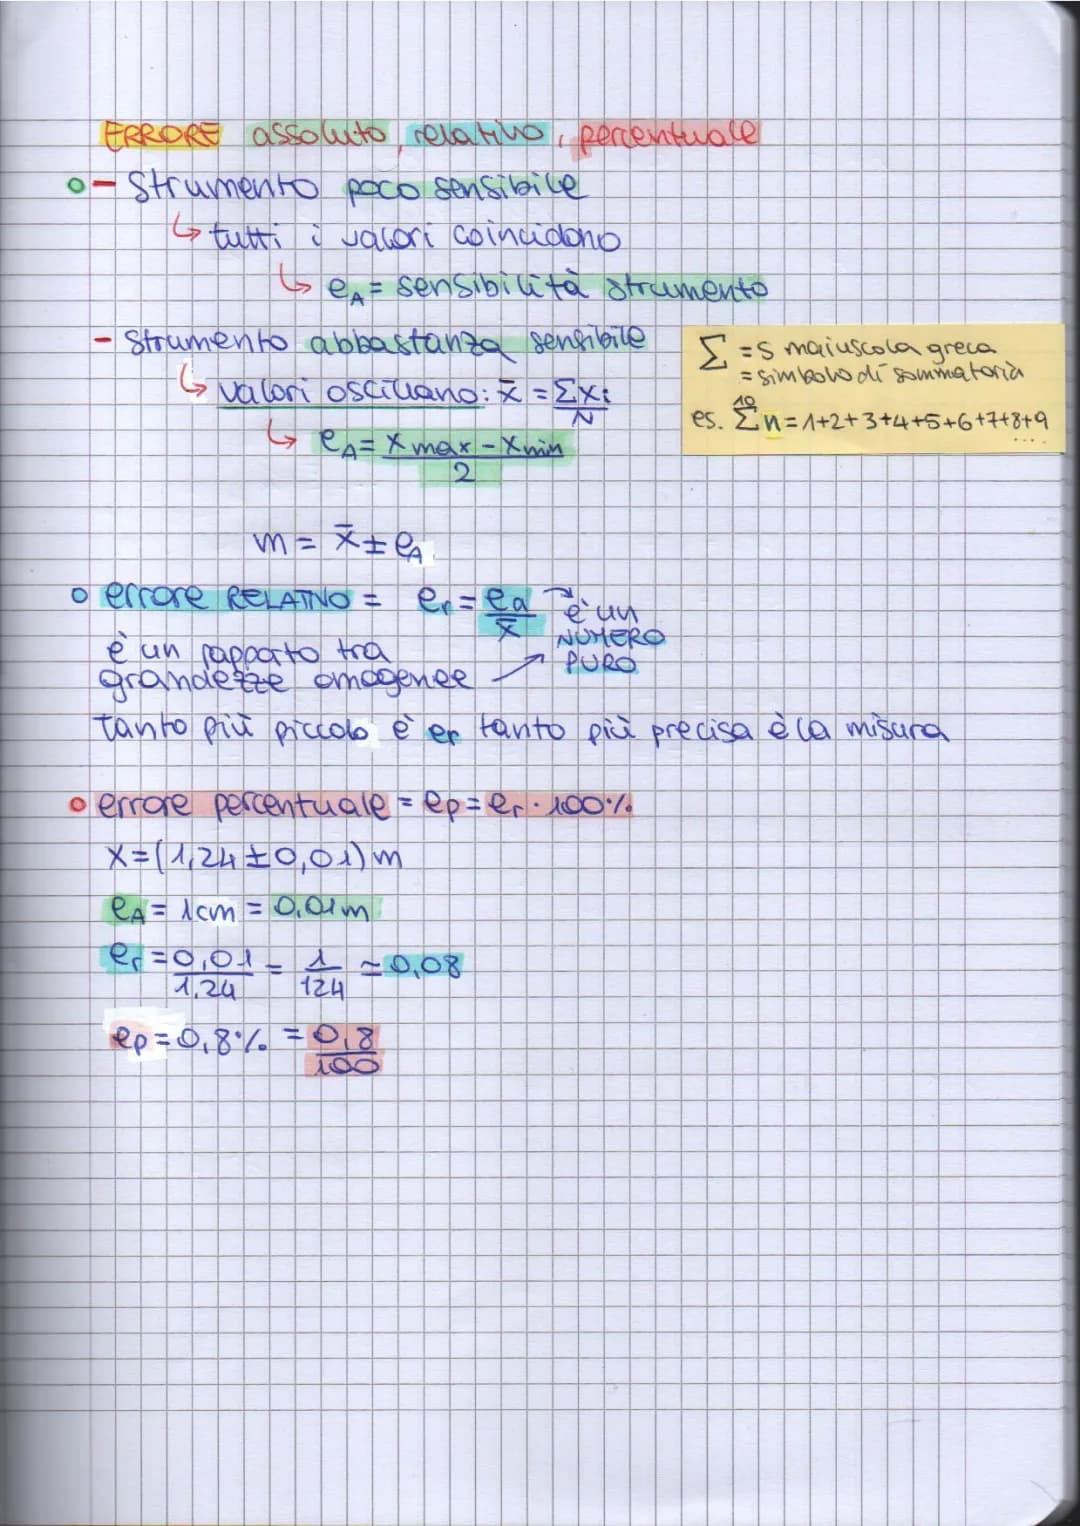 ERRORE assoluto, relativo, percentuale
- Strumento poco sensibile
↳ tutti i valori coincidono
↳ eA = sensibilità strumento
- Strumento abbastanza sensibile
↳ valori oscillano: x̄ = Σxi / N
↳ eA = (x max - x min) / 2
Σ = S maiuscola greca
= simbolo di sommatoria
es. 10 Σ n = 1+2+3+4+5+6+7+8+9
....
m = x̄ ± eA
errore RELATIVO = er = ea / x̄ → è un
NUMERO
PURO
è un rapporto tra
grandezze omogenee
tanto più piccolo è er tanto più precisa è la misura
errore percentuale = ep = er · 100%
x = (1,24 ± 0,01) m
eA = 1cm = 0,01m
er = 0,01 / 1,24 = 1 / 124 ≃ 0,08
ep = 0,8% = 0,8 / 100